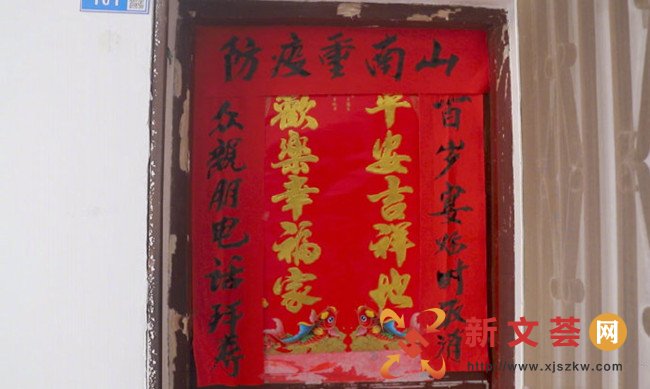 防疫重南山
百岁宴临时取消
平安吉祥地
歡樂幸福家
众親朋电话拜寿
新文荟网
http://www.xjszkw.com